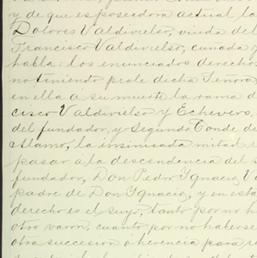 y de que es poseedora actual, la
Dolores Valdivielso, viuda del
Francisco Valdivielso, cuñada q
habla: los enunciados derechos
no teniendo prole dicha Señora,
en ella a su muerte la rama d
cisco Valdivielso y Echevers,
del fundador, y Segundo Conde de
Alamo, la insinuada mitad
pasar a la descendencia del s
fundador, Don Pedro Ygnacio V
padre de Don Ygnacio, y en esta
derecho es el suyo, tanto por no h
otro varon, cuanto por no haberse
otra succesion o herencia para, r